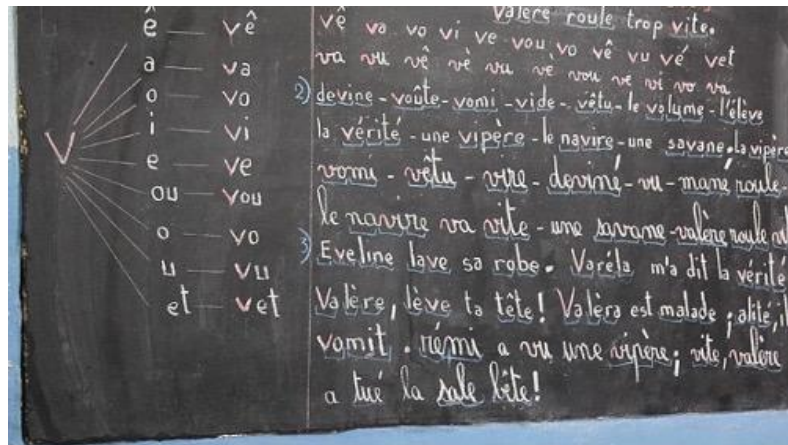 ê — vê
a — va
o — vo
i — vi
V e — ve
ou — vou
o — vo
u — vu
et — vet
Valère roule trop vite.
vê va vo vi ve vou vo vê vu vé vet
va vu vê vè vu vè vou ve vi vo va
2) devine - voûte - vomi - vide - vêtu - le volume - l'élève
la vérité - une vipère - le navire - une savane. la vipère
vomi - vêtu - vire - deviné - vu - mané roule -
le navire va vite - une savane - valère roule
3) Eveline lave sa robe. Varéla m'a dit la vérité
Valère, lève ta tête! Valèra est malade ; alité, il
vomit. rémi a vu une vipère ; vite, valère
a tué la sale bête!